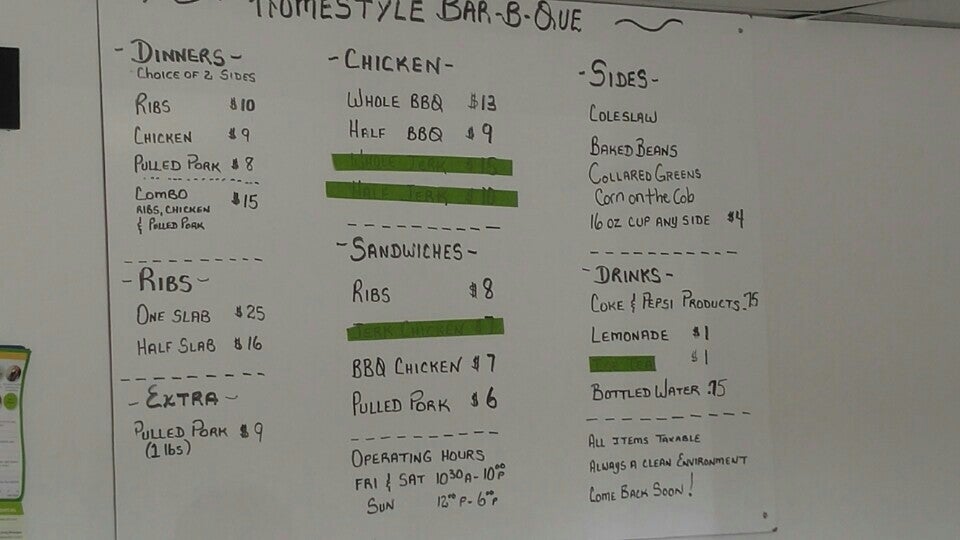 HOMESTYLE BAR-B-QUE
- DINNERS -
CHOICE OF 2 SIDES
RIBS $10
CHICKEN $9
PULLED PORK $8
COMBO $15
RIBS, CHICKEN
& PULLED PORK
- RIBS -
ONE SLAB $25
HALF SLAB $16
- EXTRA -
PULLED PORK $9
(1 lbs)
- CHICKEN -
WHOLE BBQ $13
HALF BBQ $9
WHOLE JERK $15
HALF JERK $10
- SANDWICHES -
RIBS $8
JERK CHICKEN $7
BBQ CHICKEN $7
PULLED PORK $6
OPERATING HOURS
FRI & SAT 10:30A - 10:00P
SUN 12:00P - 6:00P
- SIDES -
COLESLAW
BAKED BEANS
COLLARED GREENS
Corn on the Cob
16 OZ CUP ANY SIDE $4
- DRINKS -
COKE & PEPSI PRODUCTS .75
LEMONADE $1
$1
BOTTLED WATER .75
ALL ITEMS TAXABLE
ALWAYS A CLEAN ENVIRONMENT
COME BACK SOON!